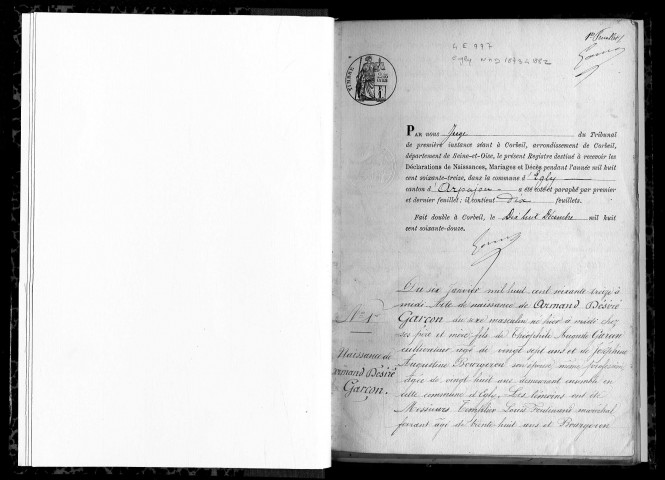 1er feuillet
4 E 997
Egly NMD 1873-1882
TIMBRE
PAR nous Juge du Tribunal
de première instance séant à Corbeil, arrondissement de Corbeil,
département de Seine-et-Oise, le présent Registre destiné à recevoir les
Déclarations de Naissances, Mariages et Décès pendant l'année mil huit
cent soixante-treize, dans la commune d'Egly
canton d'Arpajon a été coté et paraphé par premier
et dernier feuillet; il contient Dix feuillets.
Fait double à Corbeil, le Dix huit Décembre mil huit
cent soixante-douze.
Du six janvier mil huit cent soixante treize à
midi Acte de naissance de Armand Désiré
Garçon du sexe masculin né hier à midi chez
ses père et mère, fils de Théophile Auguste Garçon
cultivateur âgé de vingt sept ans et de Joséphine
Augustine Bourgeron son épouse, même profession
âgée de vingt huit ans demeurant ensemble en
cette commune d'Egly. Les témoins ont été
Messieurs Louis Ferdinand maréchal
ferrant âgé de trente huit ans et Bourgeron
No 1er
Naissance de
Armand Désiré
Garçon.